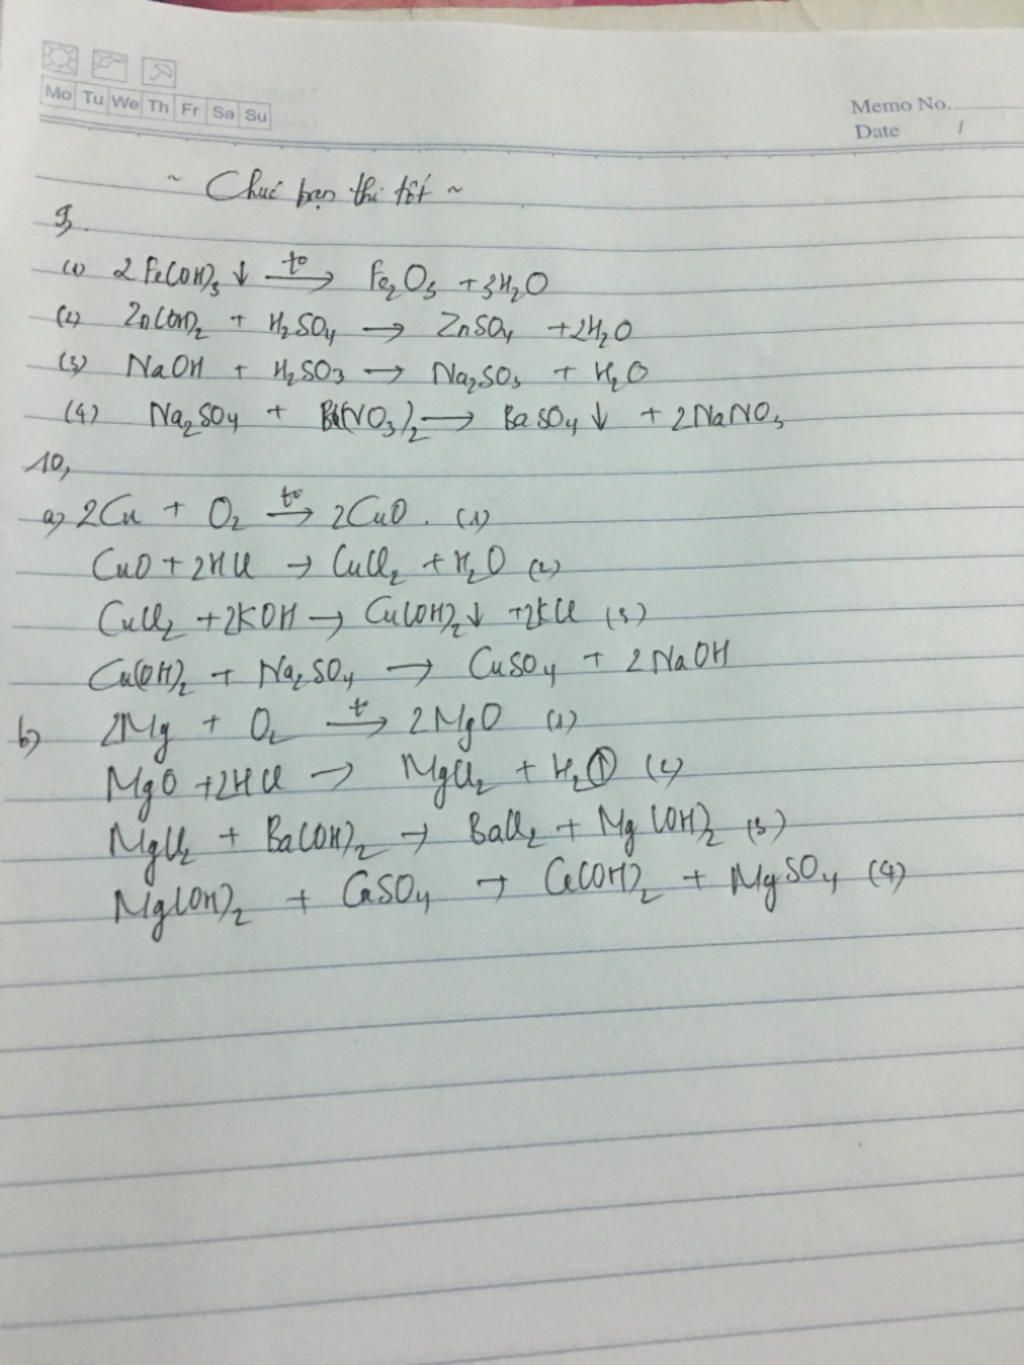 Mo Tu We Th Fr Sa Su
Memo No.
Date /
~ Chúc bạn thi tốt ~
9,
(1) 2Fe(OH)₃ ↓ →(t°) Fe₂O₃ + 3H₂O
(2) Zn(OH)₂ + H₂SO₄ → ZnSO₄ + 2H₂O
(3) NaOH + H₂SO₃ → Na₂SO₃ + H₂O
(4) Na₂SO₄ + Ba(NO₃)₂ → BaSO₄ ↓ + 2NaNO₃
10,
a) 2Cu + O₂ →(t°) 2CuO. (1)
CuO + 2HCl → CuCl₂ + H₂O (2)
CuCl₂ + 2KOH → Cu(OH)₂ ↓ + 2KCl (3)
Cu(OH)₂ + Na₂SO₄ → CuSO₄ + 2NaOH
b) 2Mg + O₂ →(t°) 2MgO (1)
MgO + 2HCl → MgCl₂ + H₂O (2)
MgCl₂ + Ba(OH)₂ → BaCl₂ + Mg(OH)₂ (3)
Mg(OH)₂ + CaSO₄ → Ca(OH)₂ + MgSO₄ (4)